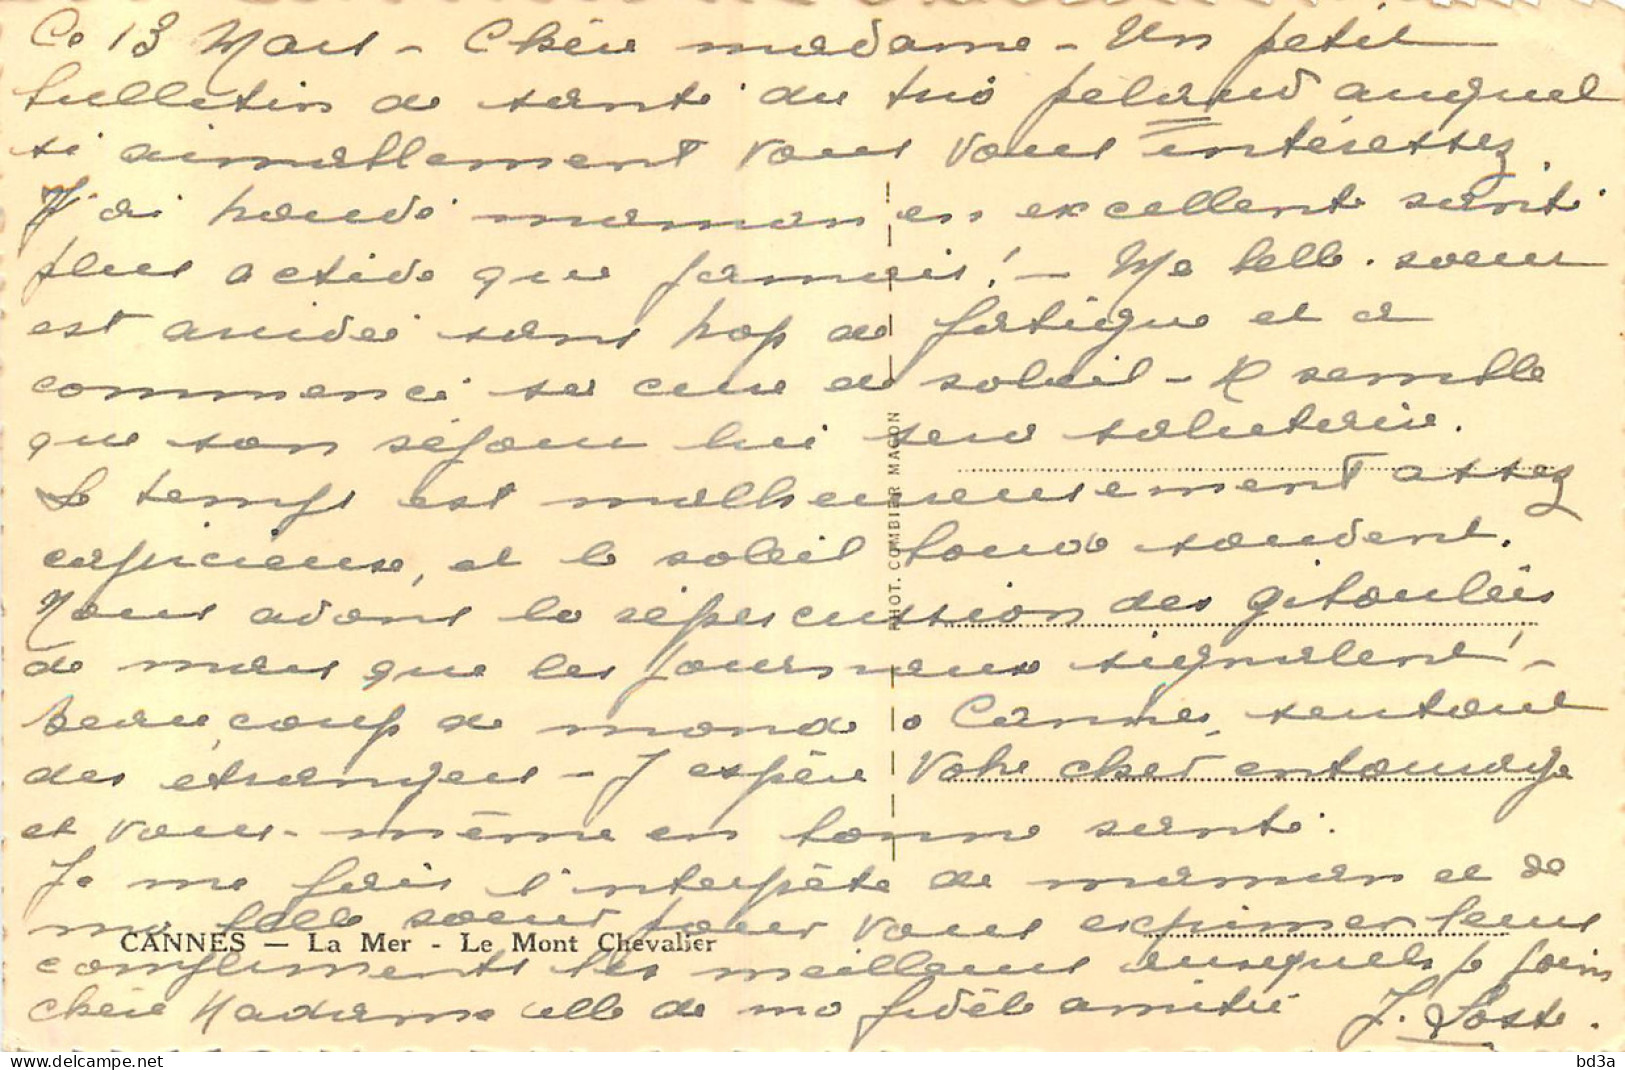 Ce 13 Mars - Chère madame - Un petit
bulletin de santé du trio auquel
si aimablement vous vous intéressez.
J'ai trouvé maman en excellente santé
plus active que jamais ! - Ma belle-soeur
est arrivée sans trop de fatigue et a
commencé sa cure de soleil - Il semble
que son séjour lui sera salutaire.
Le temps est malheureusement assez
capricieux, et le soleil boude souvent.
Nous avons la répercussion des giboulées
de mars que les journaux signalent ! -
Beaucoup de monde à Cannes, surtout
des étrangers - J'espère votre cher entourage
et vous-même en bonne santé.
Je me fais l'interprète de maman et de
ma belle soeur pour vous exprimer leurs
compliments les meilleurs auxquels je joins
chère Madame celle de ma fidèle amitié J.
CANNES — La Mer - Le Mont Chevalier
PHOT. COMBIER MACON
bd3a